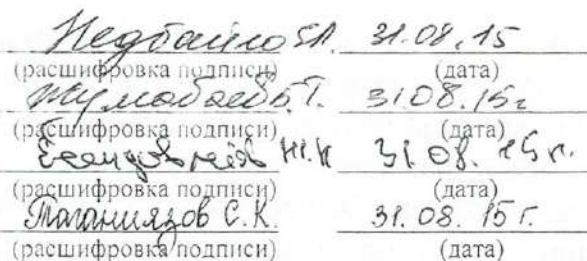 Недбайло 31.08.15
(расшифровка подписи) (дата)
Жумабаев Б.Т. 31.08.15г
(расшифровка подписи) (дата)
31.08.15г.
(расшифровка подписи) (дата)
Таганиязов С.К. 31.08.15г.
(расшифровка подписи) (дата)